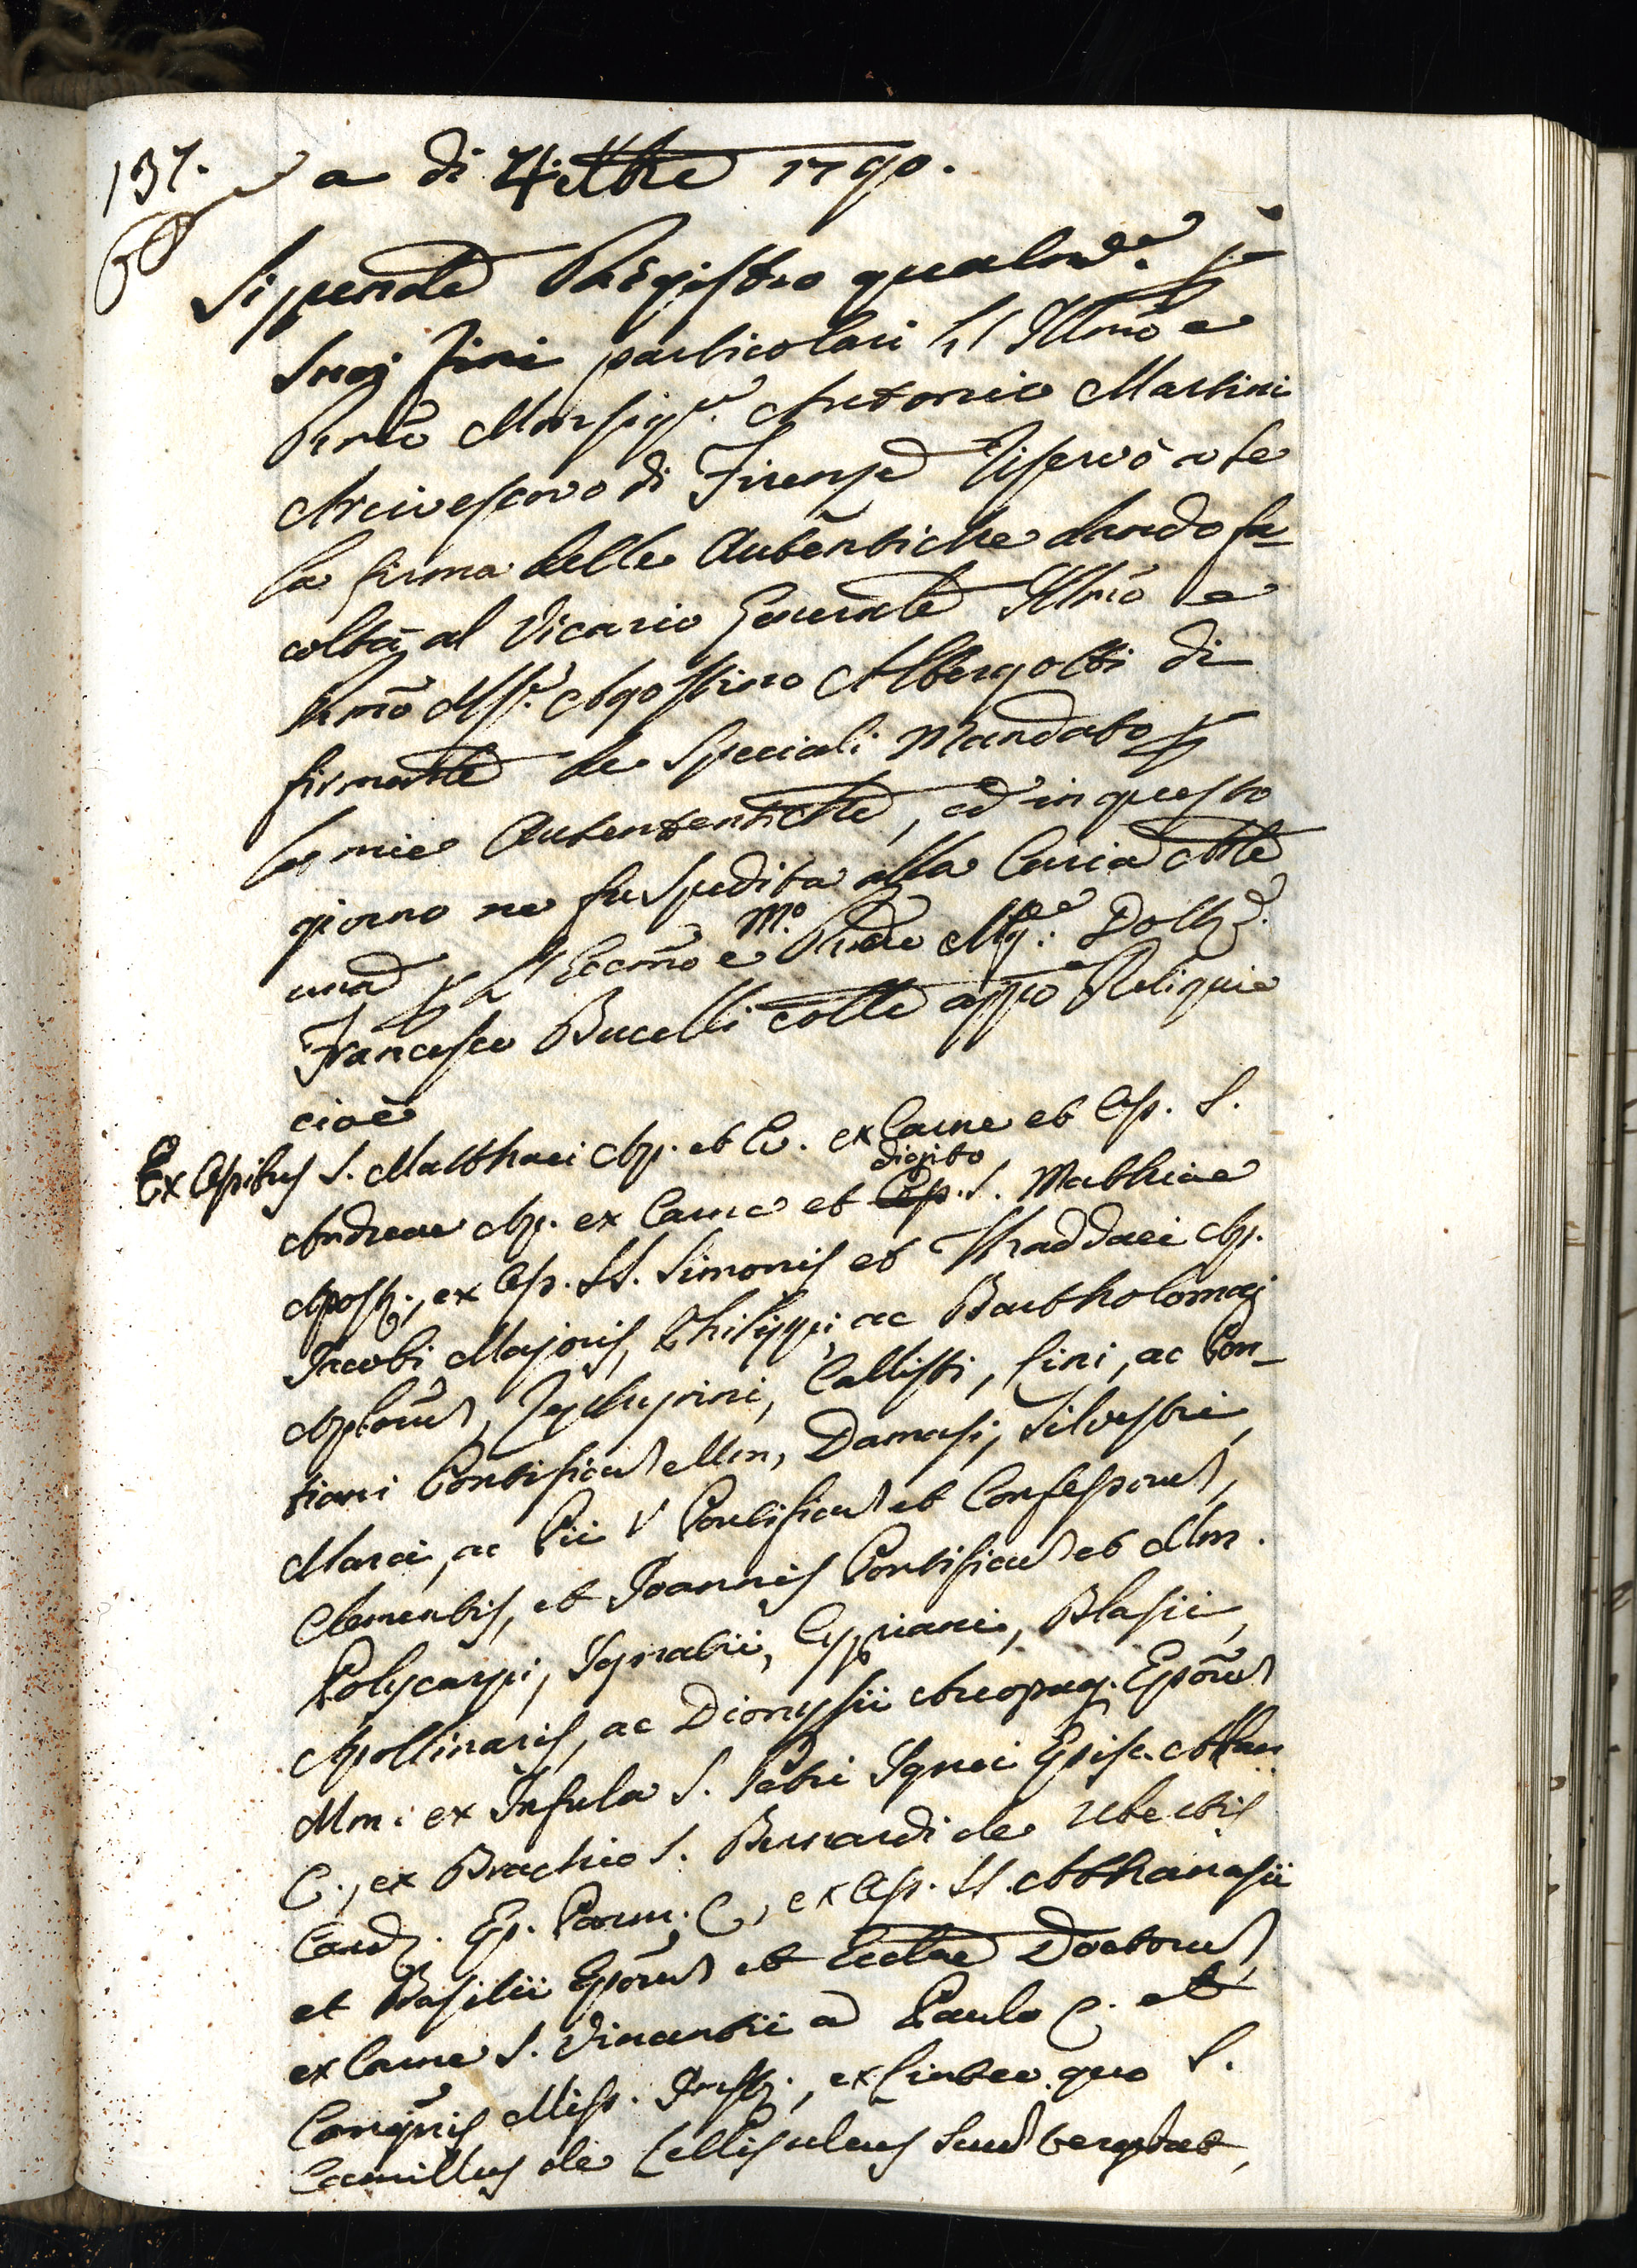 137.
a di 4 Xbre 1790.
Si prende Registro qualm.e p
Suoi fini particolari l'Illmo e
Rmo Monsig.r Antonio Martini
Arcivescovo di Firenze riservò a se
la firma delle Autentiche dando fa-
coltà al Vicario Generale Illmo e
Rmo Mr. Agostino Albergotti di
firmarle de Speciali Mandato p
le mie Autententiche, ed in questo
giorno ne fu Spedita alla Curia
una p l'Eccmo e M.o Rndo Dottr.
Francesco Bucelli colle appo Reliquie
cioè
Ex Ossibus S. Matthaei Ap. et Ev. ex Carne et Oss. S.
Andreae Ap. ex Carne et Oss. digito S. Mathiae
Apost., ex Oss. SS. Simonis et Thaddaei Ap.
Jacobi Majoris, Philippi, ac Bartholomaei
Aplorum, Zephyrini, Callisti, Lini, ac Pon-
tiani Pontificum Mm, Damasi, Silvestri,
Marci, ac Pii V Pontificum et Confessorum,
Clementis, et Joannis Pontificum et Mm.
Polycarpi, Ignatii, Cypriani, Blasii,
Apollinaris, ac Dionysii Areopag. Eporum
Mm. ex Infula S. Petri Ignei Episc. Alban.
C., ex Brachio S. Bernardi de Ubertis
Card. Ep. Parm. C, ex Oss. SS. Athanasii
et Basilii Eporum et Ecclae Doctorum
ex Carne S. Vincentii a Paulo C. et
Congnis Miss. Inst., ex Linteo quo S.
Camillus de Lellis ulcus Suum tergebat,